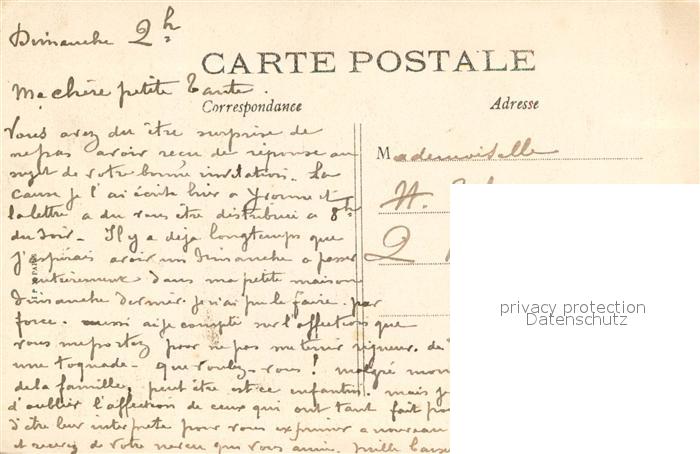 Dimanche 2h
CARTE POSTALE
Ma chère petite Tante.
Correspondance
Adresse
Vous avez du être surprise de
ne pas avoir reçu de réponse au
sujet de votre bonne invitation. La
cause je l'ai écrite hier a Yvonne et
la lettre a du vous être distribuée a 8h
du soir. Il y a déja longtemps que
j'espérais avoir un dimanche a passer
entièrement dans ma petite maison
dimanche dernier je n'ai pu le faire. par
force. aussi ai je compté sur l'affection que
vous me portez pour ne pas me tenir rigueur. de
une toquade. que voulez-vous! malgré mon
de la famille, peut être est ce enfantin. mais j
d'oublier l'affection de ceux qui ont tant fait po
d'être leur interprète pour vous exprimer a nouveau
et recevez de votre neveu qui vous aime, mille baise
Mademoiselle
2
privacy protection
Datenschutz